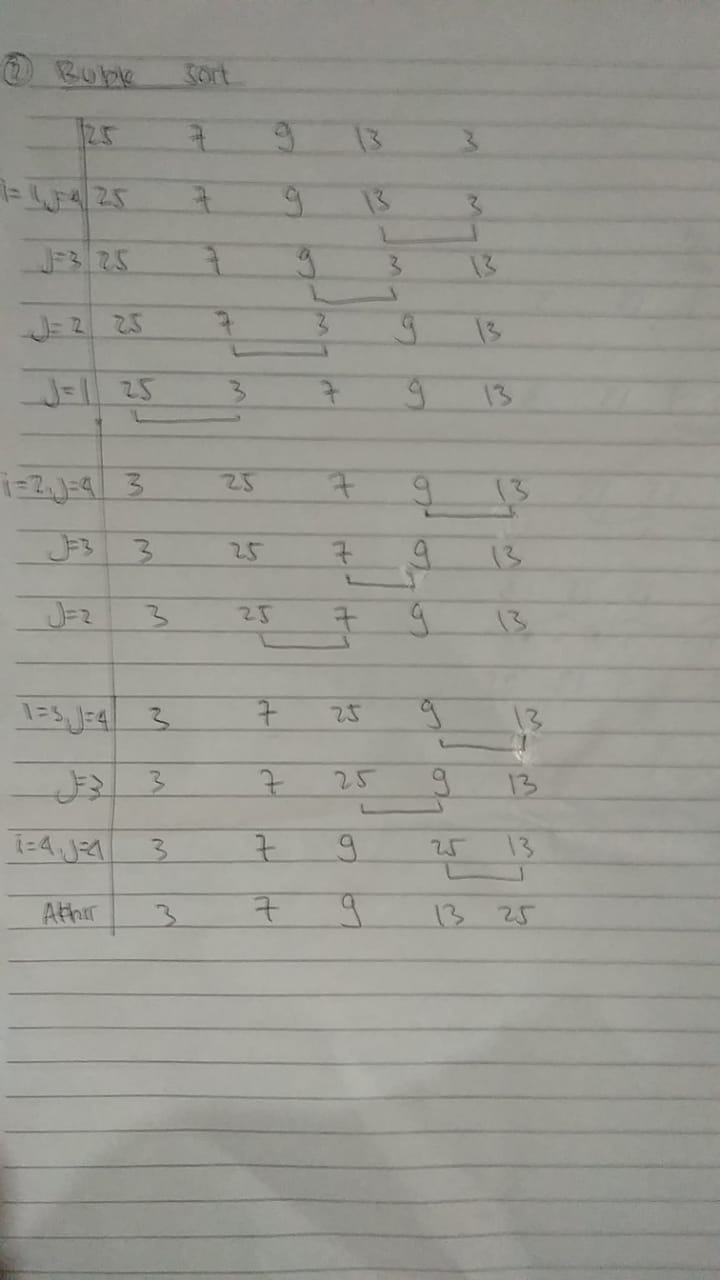 ② Buble sort
25 7 9 13 3
i=1, J=4 25 7 9 13 3
J=3 25 7 9 3 13
J=2 25 7 3 9 13
J=1 25 3 7 9 13
i=2, J=4 3 25 7 9 13
J=3 3 25 7 9 13
J=2 3 25 7 9 13
i=3, J=4 3 7 25 9 13
J=3 3 7 25 9 13
i=4, J=4 3 7 9 25 13
Akhir 3 7 9 13 25